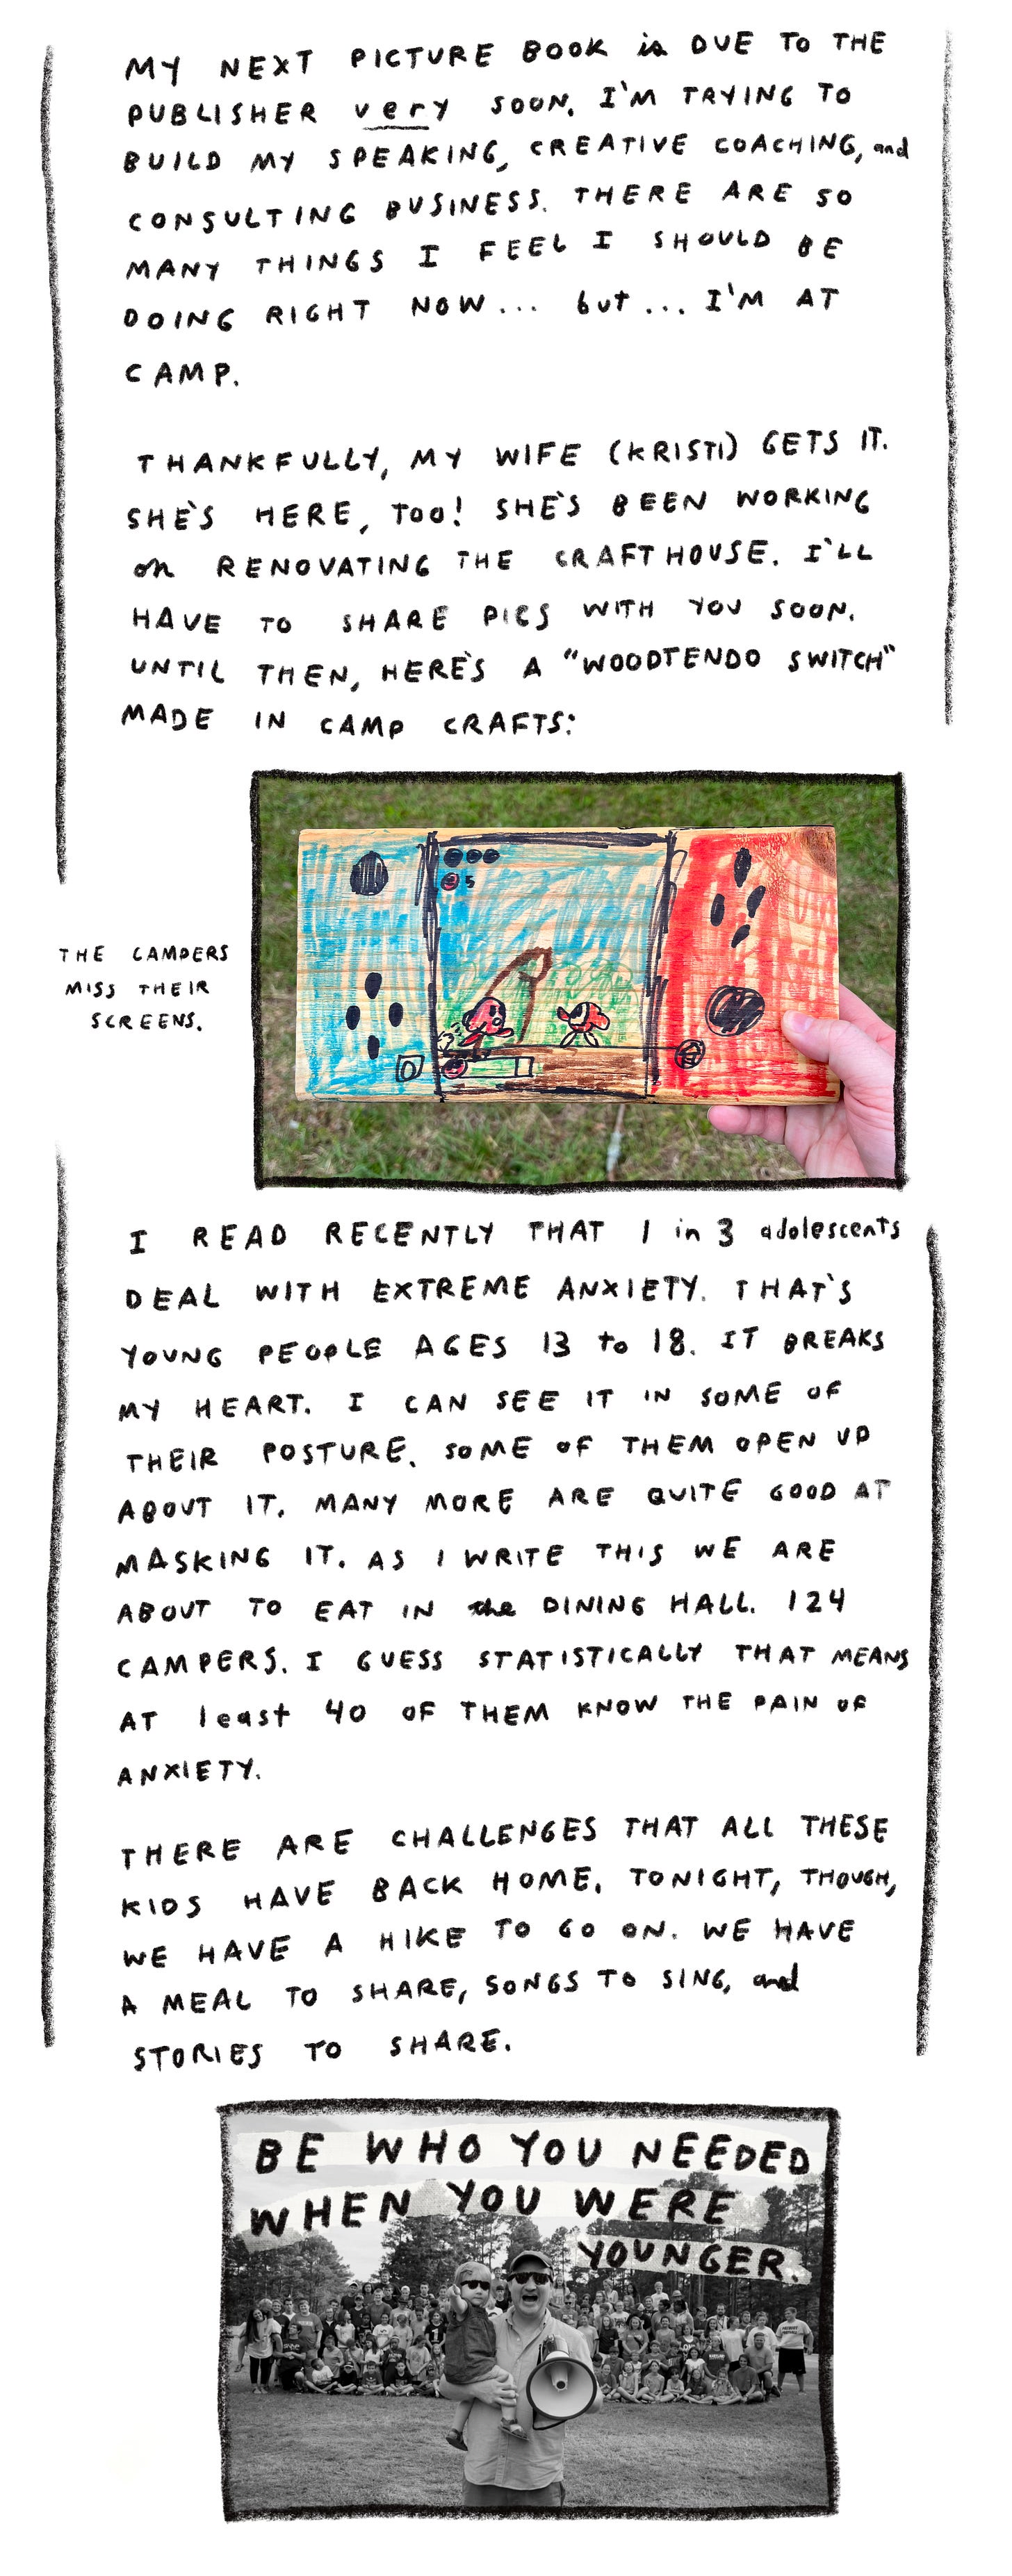 MY NEXT PICTURE BOOK is DUE TO THE
PUBLISHER very SOON. I'M TRYING TO
BUILD MY SPEAKING, CREATIVE COACHING, and
CONSULTING BUSINESS. THERE ARE SO
MANY THINGS I FEEL I SHOULD BE
DOING RIGHT NOW... but... I'M AT
CAMP.
THANKFULLY, MY WIFE (KRISTI) GETS IT.
SHE'S HERE, TOO! SHE'S BEEN WORKING
on RENOVATING THE CRAFT HOUSE. I'LL
HAVE TO SHARE PICS WITH YOU SOON.
UNTIL THEN, HERE'S A "WOODTENDO SWITCH"
MADE IN CAMP CRAFTS:
5
THE CAMPERS
MISS THEIR
SCREENS.
I READ RECENTLY THAT 1 in 3 adolescents
DEAL WITH EXTREME ANXIETY. THAT'S
YOUNG PEOPLE AGES 13 to 18. IT BREAKS
MY HEART. I CAN SEE IT IN SOME OF
THEIR POSTURE. SOME OF THEM OPEN UP
ABOUT IT. MANY MORE ARE QUITE GOOD AT
MASKING IT. AS I WRITE THIS WE ARE
ABOUT TO EAT IN the DINING HALL. 124
CAMPERS. I GUESS STATISTICALLY THAT MEANS
AT least 40 OF THEM KNOW THE PAIN OF
ANXIETY.
THERE ARE CHALLENGES THAT ALL THESE
KIDS HAVE BACK HOME. TONIGHT, THOUGH,
WE HAVE A HIKE TO GO ON. WE HAVE
A MEAL TO SHARE, SONGS TO SING, and
STORIES TO SHARE.
BE WHO YOU NEEDED
WHEN YOU WERE
YOUNGER.